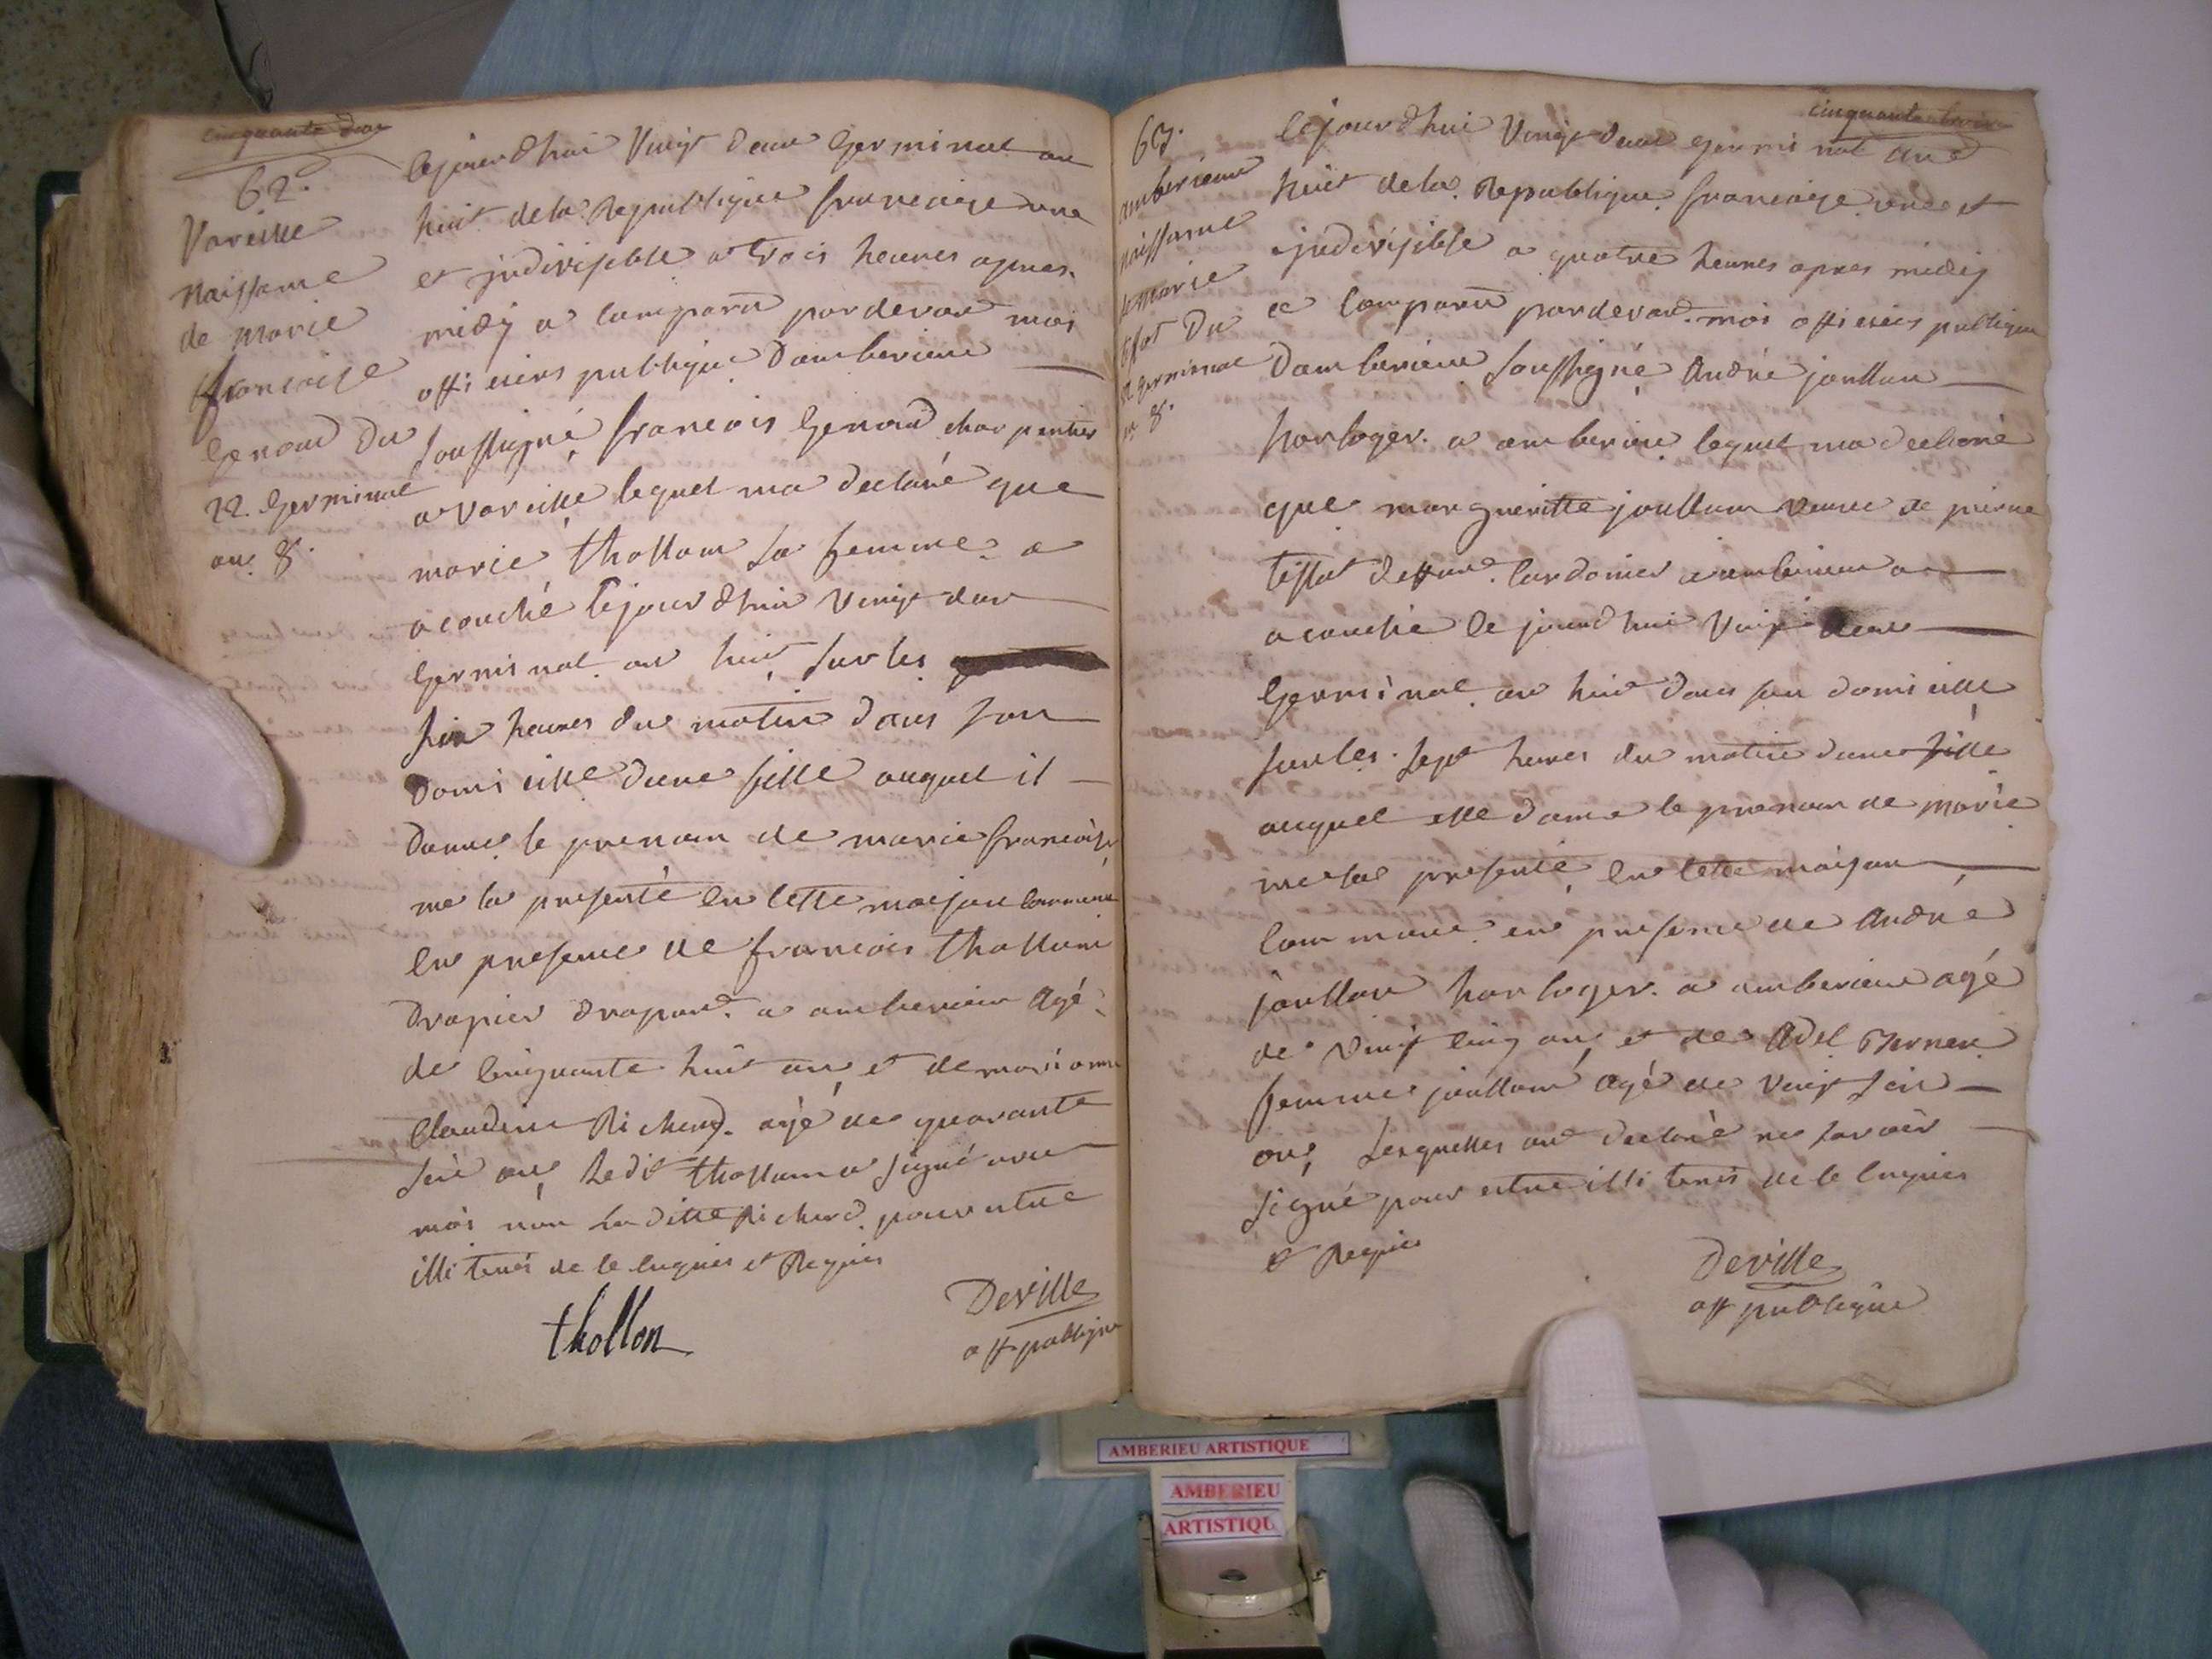 cinquante deux
62.
Vareille
Naissance
de marie
francoise
Genoud du
22. Germinal
an. 8.
Cejourdhui Vingt deux Germinal an
huit de la Republique francaise une
et jndivisible a trois heures apres
midy a comparu pardevant moi
officiers publique Damberieux
soussigné francois Genoud charpentier
a vareille lequel ma declaré que
marie thollon sa femme a
acouché Cejourdhui vingt deux
Germinal an huit sur les
six heures du matin dans son
Domicille dune fille auquel il
donne le prenom de marie francoise
me la presenté en cette maison commune
en presence de francois thollon
drapier drapant a amberieux Agé
de cinquante huit ans et de
Claudine Richerd. agé de quarante
six ans Ledit thollon a signé avec
moi non La ditte Richerd pour entre
illi teré de ce enquier et Requis
thollon
Deville
off publique
cinquante trois
63.
amberieux
naissance
de marie
tissot Du
22 germinal
an 8.
Cejourdhui Vingt deux germinal an
huit de la Republique francaise une et
jndivisible a quatre heures apres midy
a Comparu pardevant moi officiers publique
Damberieux soussigné André joullon
horloger. a amberieux lequel ma declaré
que margueritte joullon veuve de pierre
tissot deffunt. Cordonier a amberieux a
acouché Ce jourdhui Vingt deux
Germinal an huit dans son domicille
sur les sept heures du matin dune fille
auquel elle donne le prenom de marie
me la presenté en cette maison
Commune en presence de André
joullon horloger. a amberieux agé
de vingt cinq ans et de
femme joullon agé de vingt six
ans, Lesquelles ont declaré ne savoir
signé pour entre illi terés de ce enquier
et Requis
Deville
off publique
AMBERIEU ARTISTIQUE
AMBERIEU
ARTISTIQU